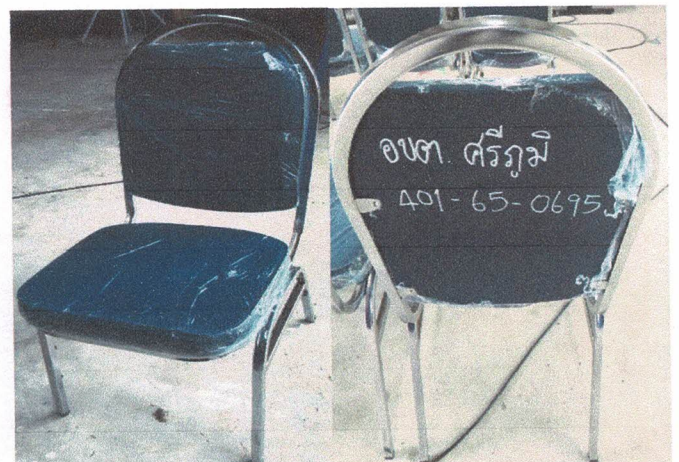 อบต. ศรีภูมิ
401-65-0695